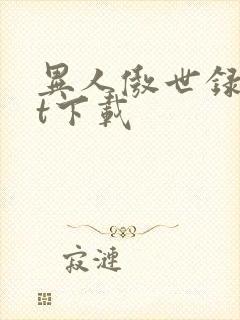 異人傲世録
t下載
寂漣